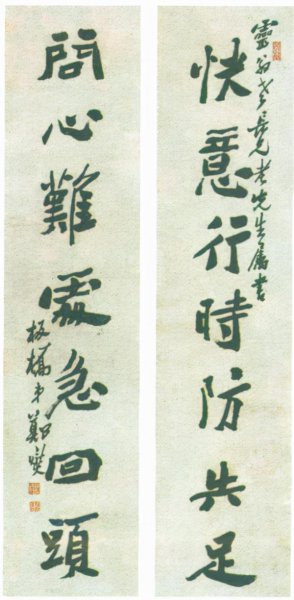 靈翁学長兄老先生屬書
快意行時防失足
問心難處急回頭
板橋弟鄭燮